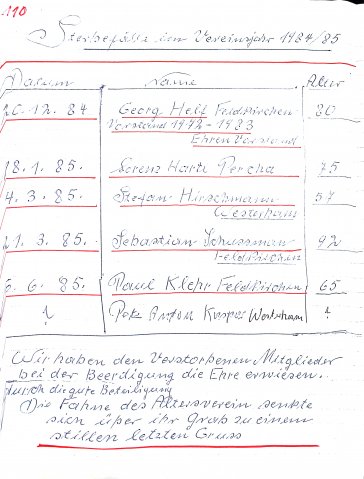 110
Sterbefälle im Vereinsjahr 1984/85
Datum Name Alter
20. 12. 84 Georg Helf Feldkirchen 80
Vorstand 1972 - 1983
Ehren Vorstand
18. 1. 85. Lorenz Hartl Percha 75
4. 3. 85. Stefan Hirschmann 57
Westerham
21. 3. 85. Sebastian Schussman 92
Feldkirchen
6. 6. 85. Paul Klehr Feldkirchen 65
Anton Westerham
Wir haben den Verstorbenen Mitglieder
bei der Beerdigung die Ehre erwiesen.
durch die gute Beteiligung
Die Fahne des Altersverein senkte
sich über ihr Grab zu einem
stillen letzten Gruss